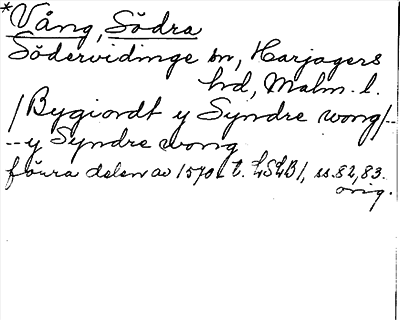 *Vång, Södra
Södervidinge sn, Harjagers
hd, Malm. l.
/Bygiordt y Syndre wong/--
--y Syndre wong
förra delen av 1570-t. LSLB1, ss.82,83.
orig.